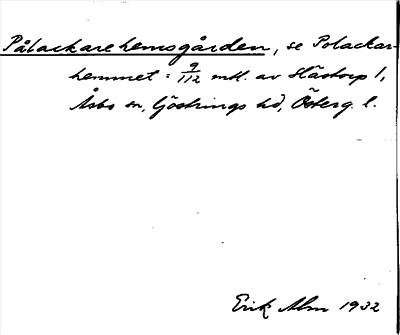 Pålackarehemsgården, se Polackar-
hemmet = 9/112 mtl. av Hästorp 1,
Åsbo sn, Göstrings hd, Österg. l.
Erik Alm 1932